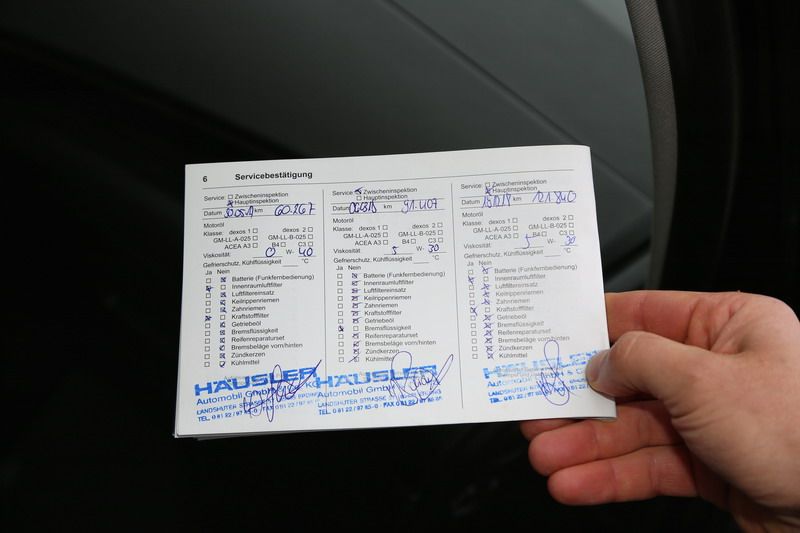 6 Servicebestätigung
Service: Zwischeninspektion
Hauptinspektion
Datum km 60.267
Motoröl
Klasse: dexos 1 dexos 2
GM-LL-A-025 GM-LL-B-025
ACEA A3 B4 C3
Viskosität: 0 W- 40
Gefrierschutz, Kühlflüssigkeit °C
Ja Nein
Batterie (Funkfernbedienung)
Innenraumluftfilter
Luftfiltereinsatz
Keilrippenriemen
Zahnriemen
Kraftstofffilter
Getriebeöl
Bremsflüssigkeit
Reifenreparaturset
Bremsbeläge vorn/hinten
Zündkerzen
Kühlmittel
HÄUSLER
Automobil GmbH
LANDSHUTER STRASSE
TEL. 0 81 22 / 97
Service: Zwischeninspektion
Hauptinspektion
Datum km 91.407
Motoröl
Klasse: dexos 1 dexos 2
GM-LL-A-025 GM-LL-B-025
ACEA A3 B4 C3
Viskosität: 5 W- 30
Gefrierschutz, Kühlflüssigkeit °C
Ja Nein
Batterie (Funkfernbedienung)
Innenraumluftfilter
Luftfiltereinsatz
Keilrippenriemen
Zahnriemen
Kraftstofffilter
Getriebeöl
Bremsflüssigkeit
Reifenreparaturset
Bremsbeläge vorn/hinten
Zündkerzen
Kühlmittel
HÄUSLER
Automobil GmbH
LANDSHUTER STRASSE
TEL. 0 81 22 / 97 85-0
Service: Zwischeninspektion
Hauptinspektion
Datum km 121.840
Motoröl
Klasse: dexos 1 dexos 2
GM-LL-A-025 GM-LL-B-025
ACEA A3 B4 C3
Viskosität: 5 W- 30
Gefrierschutz, Kühlflüssigkeit °C
Ja Nein
Batterie (Funkfernbedienung)
Innenraumluftfilter
Luftfiltereinsatz
Keilrippenriemen
Zahnriemen
Kraftstofffilter
Getriebeöl
Bremsflüssigkeit
Reifenreparaturset
Bremsbeläge vorn/hinten
Zündkerzen
Kühlmittel
HÄUSLER
Automobil
LANDSHUTER STRASSE
TEL. 0 81 22 / 97